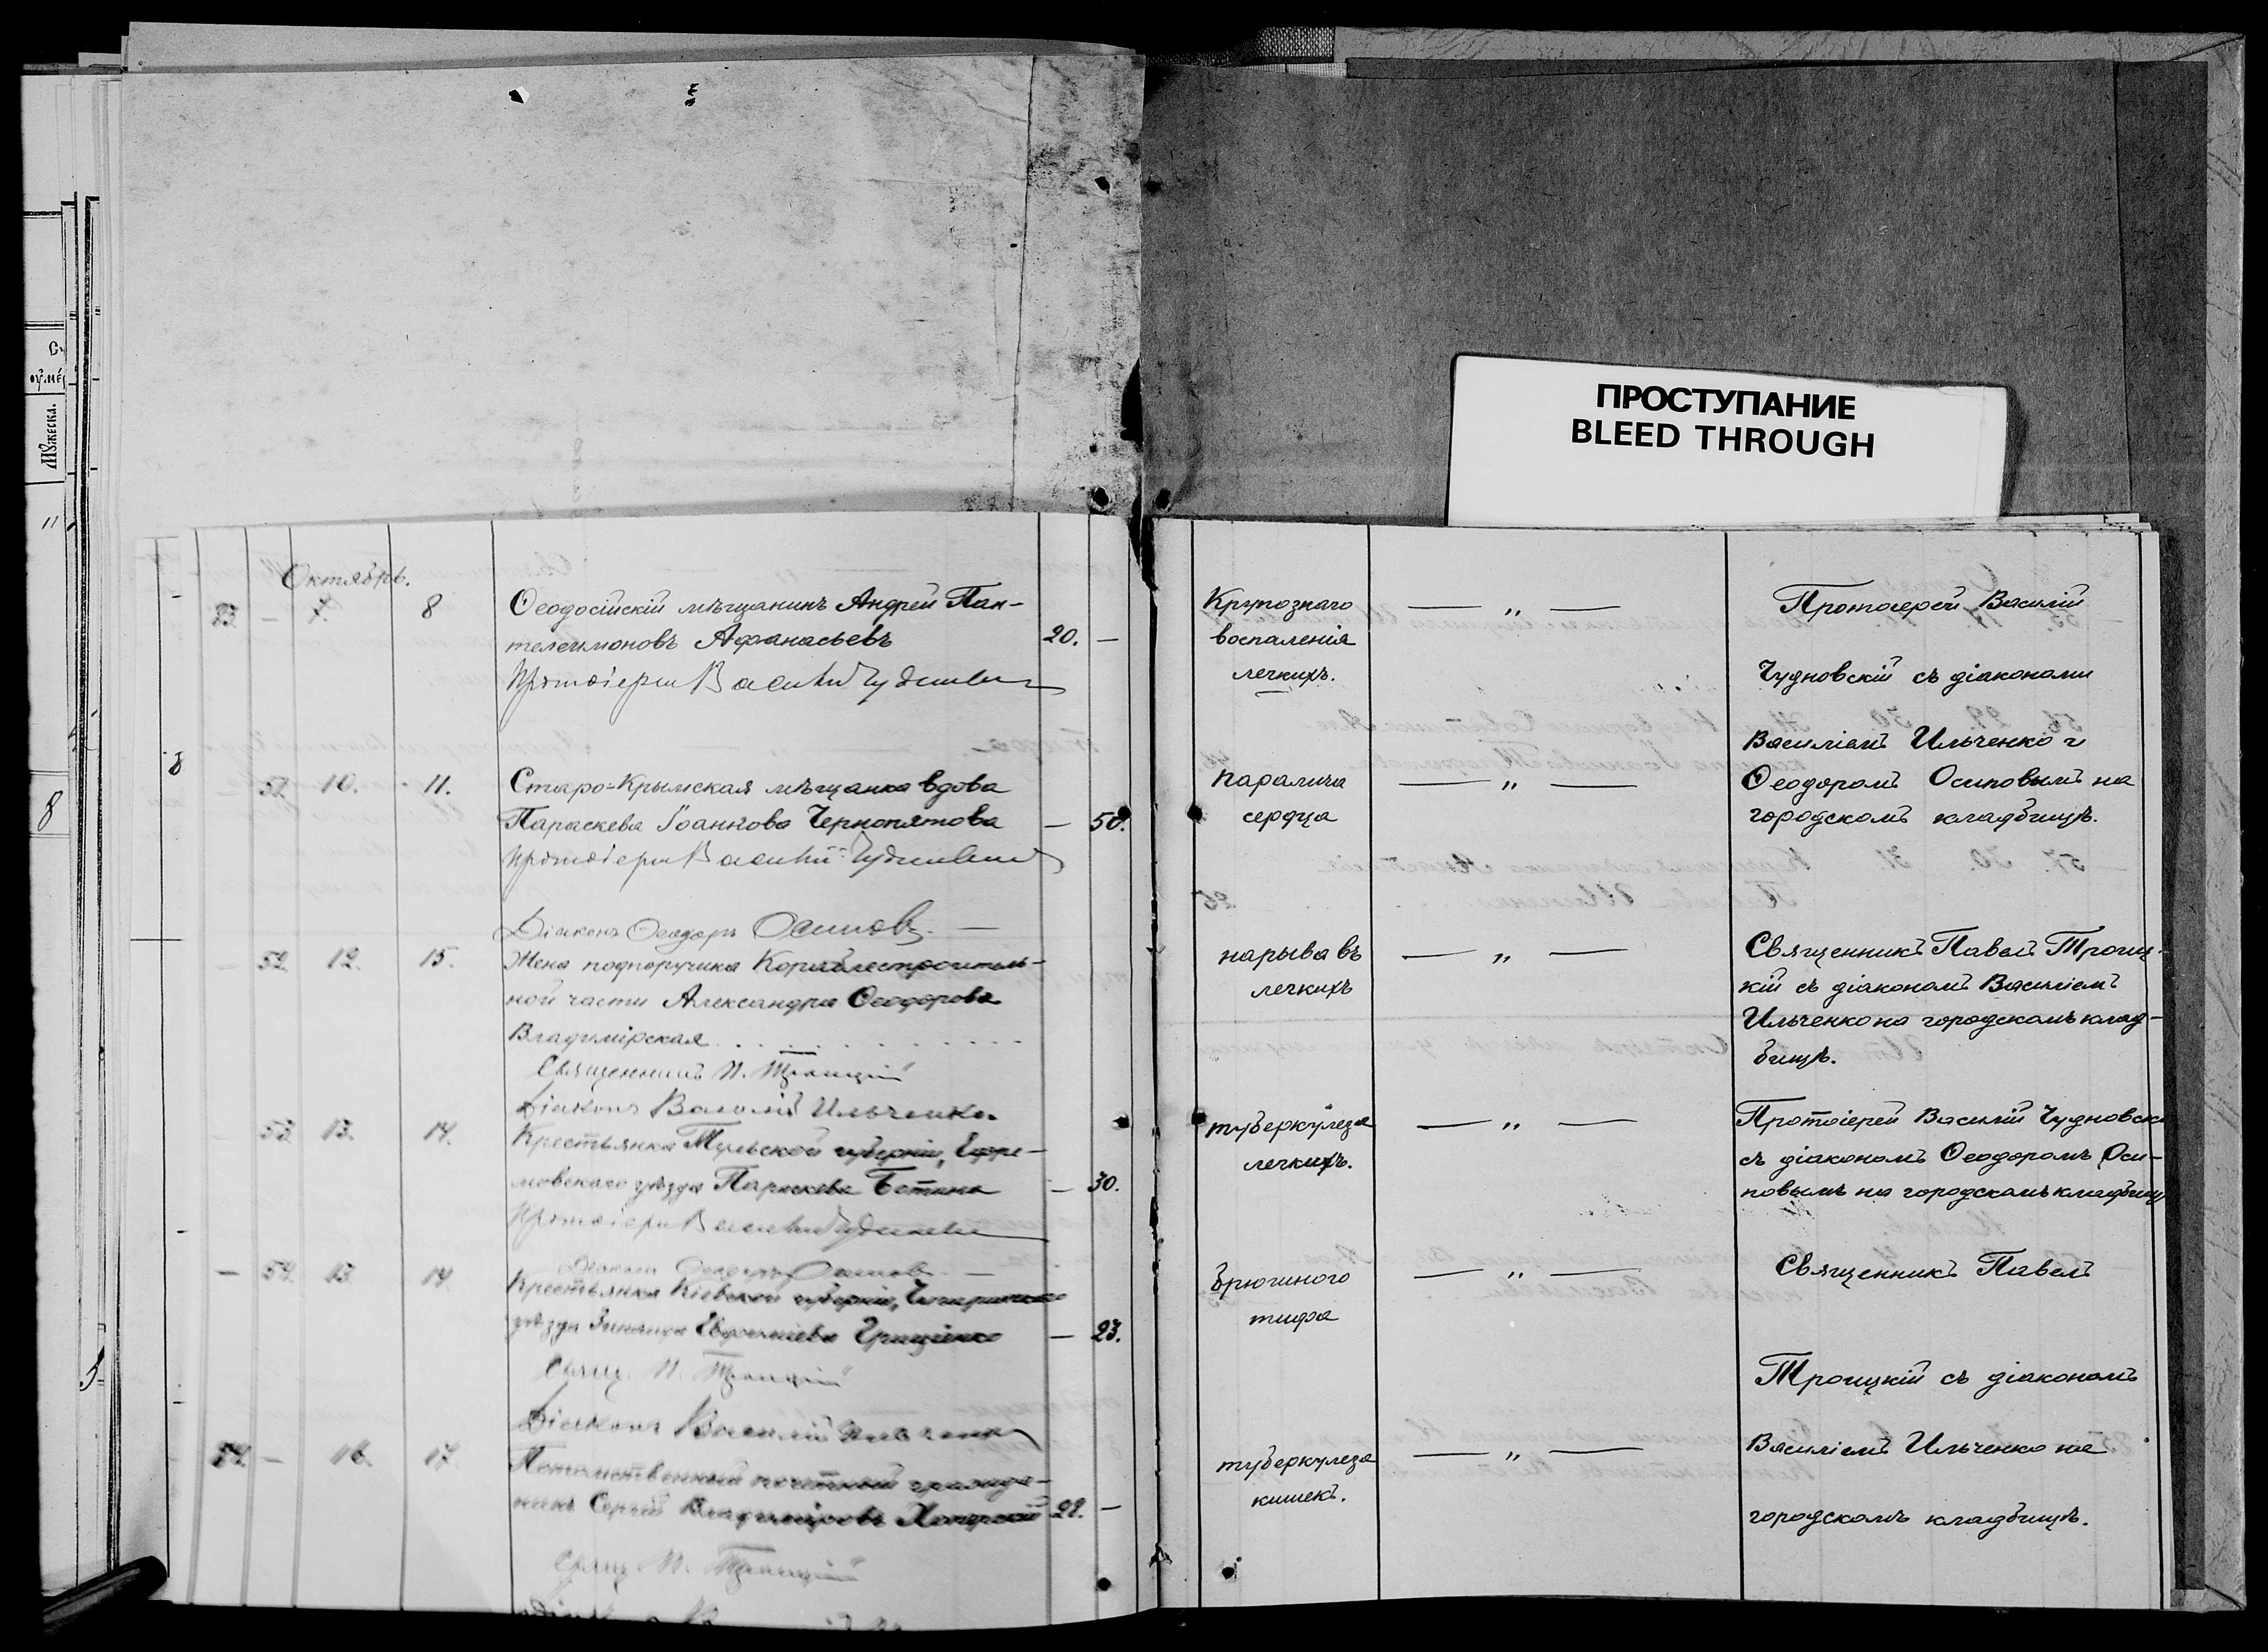 Мꙋжеска.
8
ПРОСТУПАНИЕ
BLEED THROUGH
Октябрь.
53. — 7. 8 Ѳеодосійскій мѣщанинъ Андрей Пан-
телеимоновъ Аѳанасьевъ 20. —
Протоіерей Василій Чудновскій
8
51. 10. 11. Старо-Крымская мѣщанка вдова
Параскева Іоаннова Чернопятова — 50.
Протоіерей Василій Чудновскій
Діаконъ Ѳеодоръ Осиповъ. —
— 52. 12. 15. Жена подпоручика Кораблестроитель-
ной части Александра Ѳеодорова
Владимірская
Священникъ П. Троицкій
Діаконъ Василій Ильченко.
— 53. 13. 14. Крестьянка Тульской губерніи, Ефре-
мовскаго уѣзда Параскева — 30.
Протоіерей Василій Чудновскій
Діаконъ Ѳеодоръ Осиповъ. —
— 54. 13. 14. Крестьянка Кіевской губерніи,
уѣзда Евфиміева Грищенко — 23.
Свящ. П. Троицкій
Діаконъ Василій Ильченко
54. — 16. 17. Потомственный почетный гражда-
нинъ Сергій Владиміровъ 22. —
Свящ. П. Троицкій
Крупознаго
воспаленія
легкихъ.
— „ —
паралича
сердца
— „ —
нарыва въ
легкихъ
— „ —
туберкулеза
легкихъ.
— „ —
брюшного
тифа
— „ —
туберкулеза
кишекъ.
— „ —
Протоіерей Василій
Чудновскій съ діаконами
Василіемъ Ильченко и
Ѳеодоромъ Осиповымъ на
городскомъ кладбищѣ.
Священникъ Павелъ Троиц-
кій съ діакономъ Василіемъ
Ильченко на городскомъ клад-
бищѣ.
Протоіерей Василій Чудновск
съ діакономъ Ѳеодоромъ Оси-
повымъ на городскомъ кладбищ
Священникъ Павелъ
Троицкій съ діакономъ
Василіемъ Ильченко на
городскомъ кладбищѣ.